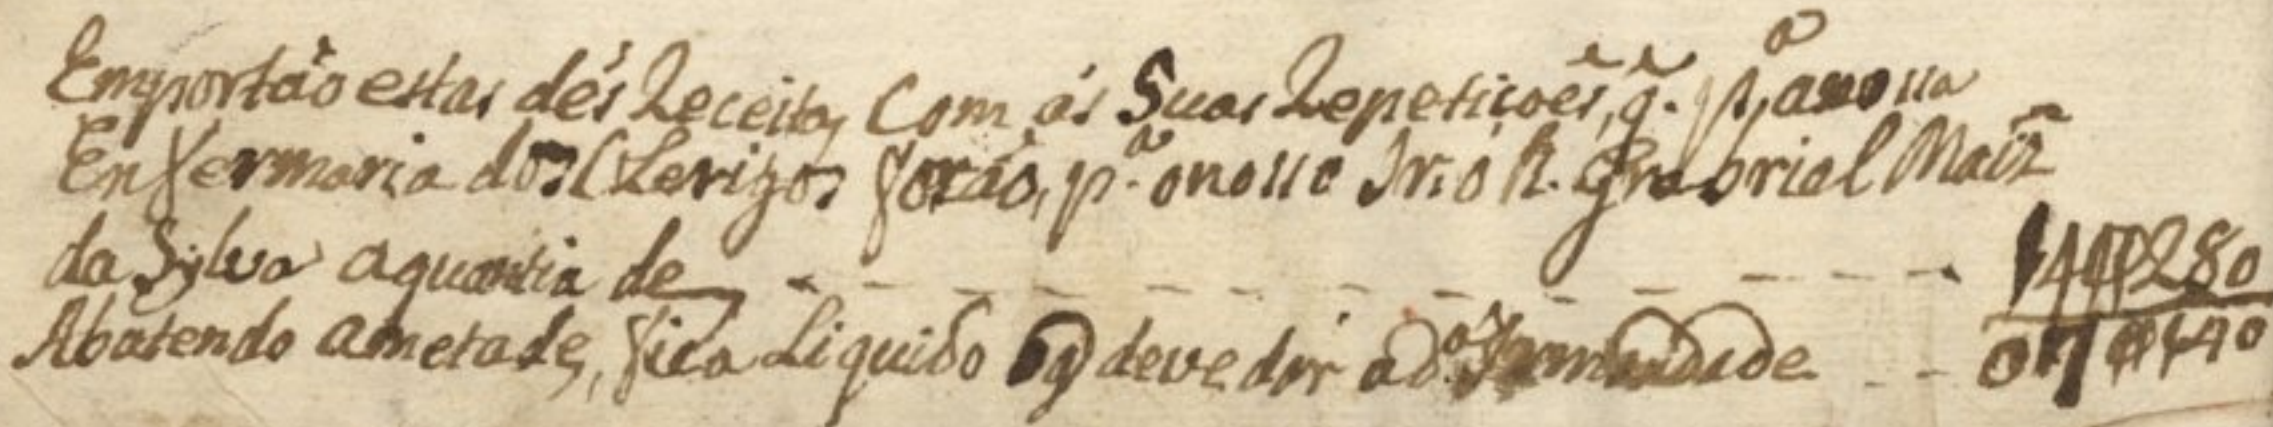 Emportão estas dés Receitas Com ás Suas Repetiçoẽs, q̃. p.ª a nossa
Enfermaria dos Clerigos forão, p.ª o nosso Ir.ó R. Grabriel Maĩz
da Sylva a quantia de - - - - - - - - - - 14$280
Abatendo ametade, fica Liquido devedór a d.ª Irmandade - - 07$140